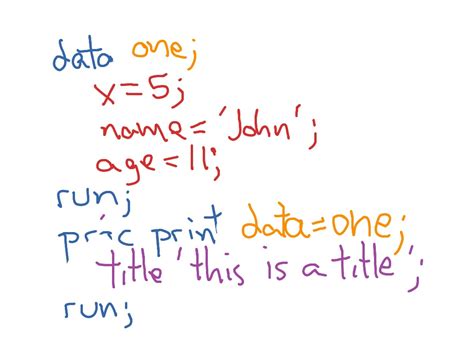 data one;
x=5;
name='John';
age=11;
run;
proc print data=one;
title 'this is a title';
run;